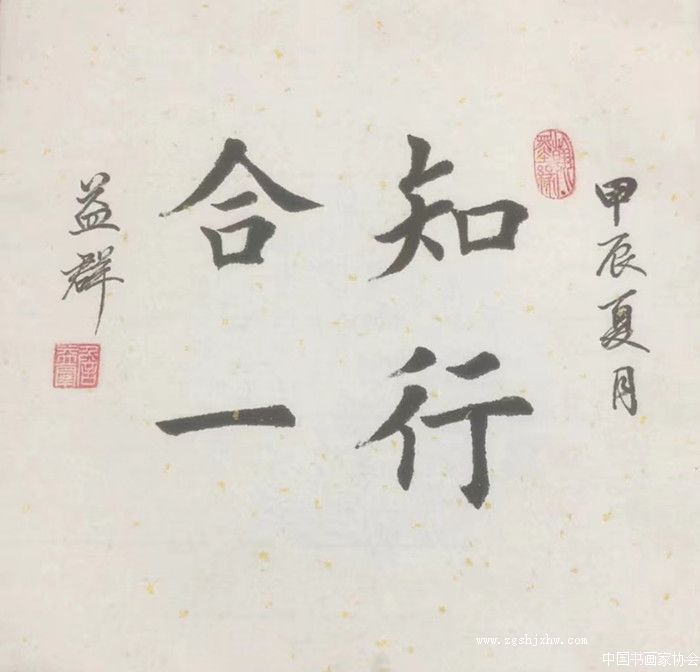 甲辰夏月
知行
合一
益群
www.zgshjxhw.com
中国书画家协会